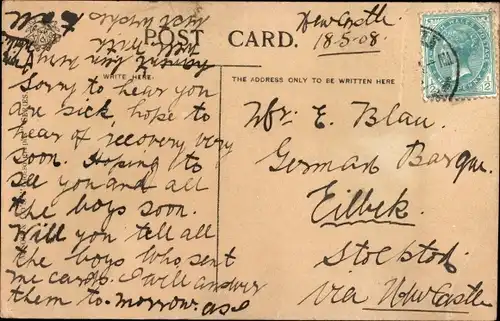 Newcastle
18-5-08.
POST CARD.
WRITE HERE.
THE ADDRESS ONLY TO BE WRITTEN HERE
Sorry to hear you
are sick, hope to
hear of recovery very
soon. Hoping to
see you and all
the boys soon.
Will you tell all
the boys who sent
me cards. I will answer
them to-morrow. as I
Mr. E. Blau.
German Barque.
Eilbek.
Stockton
via NewCastle